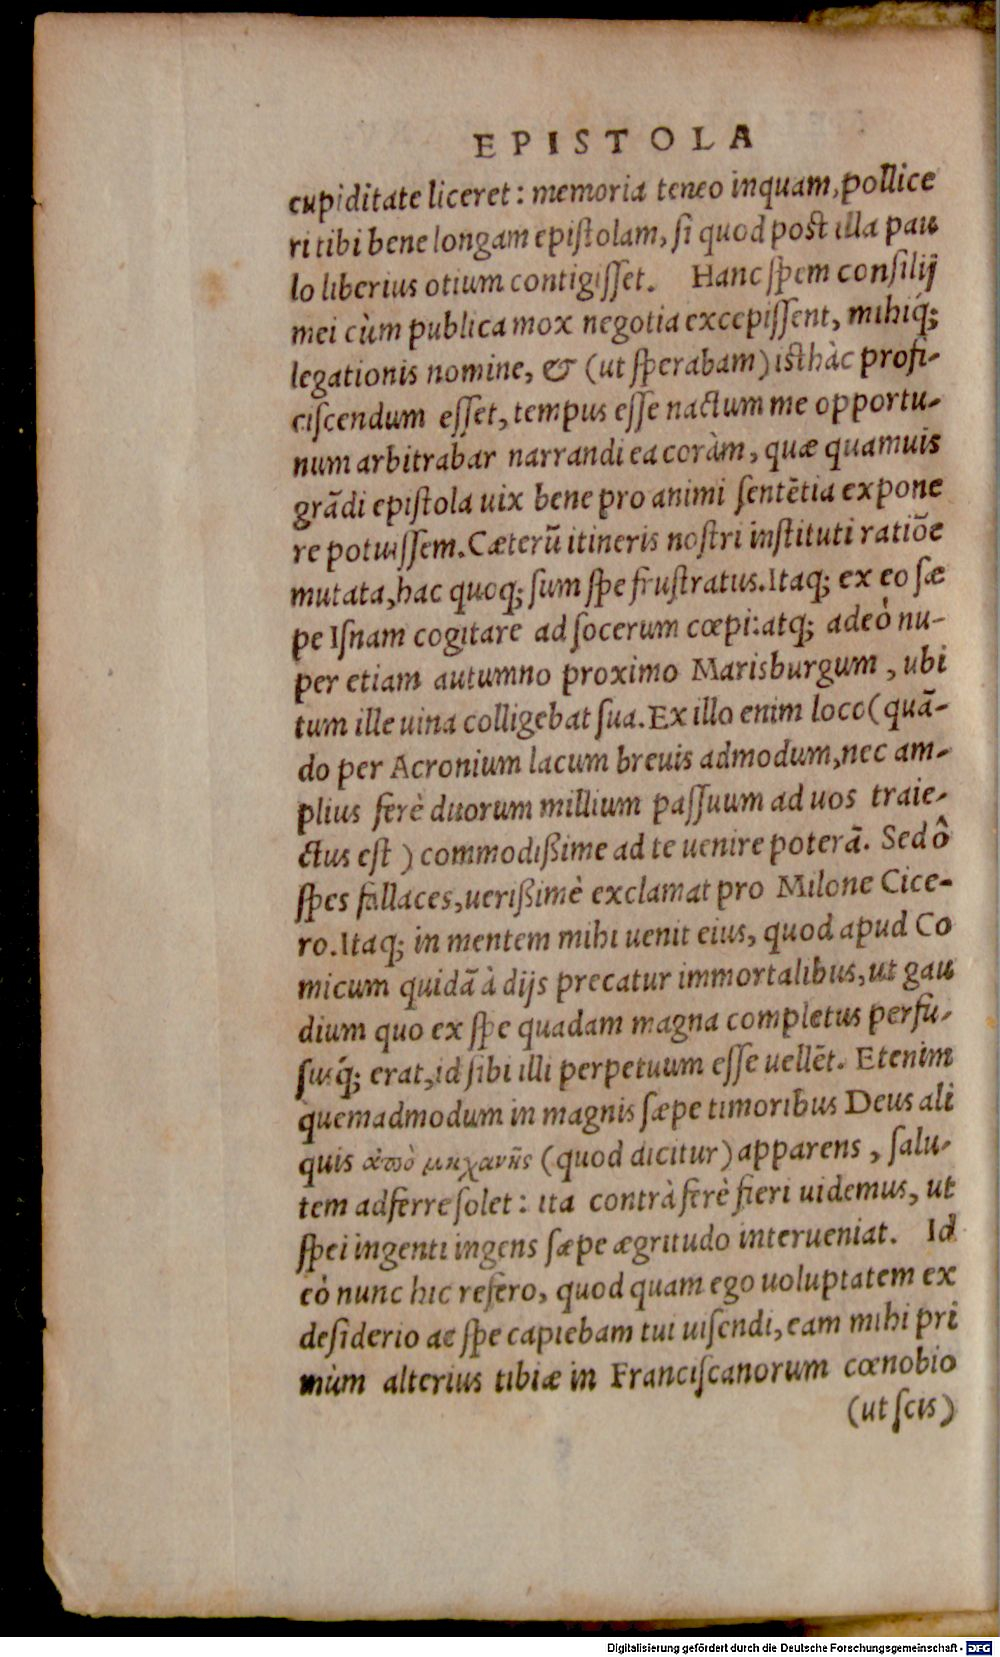 EPISTOLA
cupiditate liceret: memoria teneo inquam, pollice
ri tibi bene longam epistolam, si quod post illa pau
lo liberius otium contigisset. Hanc spem consilij
mei cùm publica mox negotia excepissent, mihiq́;
legationis nomine, & (ut sperabam) isthàc profi-
ciscendum esset, tempus esse nactum me opportu-
num arbitrabar narrandi ea coràm, quæ quamuis
grādi epistola uix bene pro animi sentētia expone
re potuissem. Cæterū itineris nostri instituti ratiōe
mutata, hac quoq; sum spe frustratus. Itaq; ex eo sæ
pe Isnam cogitare ad socerum cœpi: atq; adeò nu-
per etiam autumno proximo Marisburgum, ubi
tum ille uina colligebat sua. Ex illo enim loco (quā-
do per Acronium lacum breuis admodum, nec am-
plius ferè duorum millium passuum ad uos traie-
ctus est) commodißime ad te uenire poterā. Sed ô
spes fallaces, uerißimè exclamat pro Milone Cice-
ro. Itaq; in mentem mihi uenit eius, quod apud Co
micum quidā à dijs precatur immortalibus, ut gau
dium quo ex spe quadam magna completus perfu-
susq́; erat, id sibi illi perpetuum esse uellēt. Etenim
quemadmodum in magnis sæpe timoribus Deus ali
quis ἀπὸ μηχανῆς (quod dicitur) apparens, salu-
tem adferre solet: ita contrà ferè fieri uidemus, ut
spei ingenti ingens sæpe ægritudo interueniat. Id
eò nunc hic refero, quod quam ego uoluptatem ex
desiderio ac spe capiebam tui uisendi, eam mihi pri
mùm alterius tibiæ in Franciscanorum cœnobio
(ut scis)
Digitalisierung gefördert durch die Deutsche Forschungsgemeinschaft - DFG